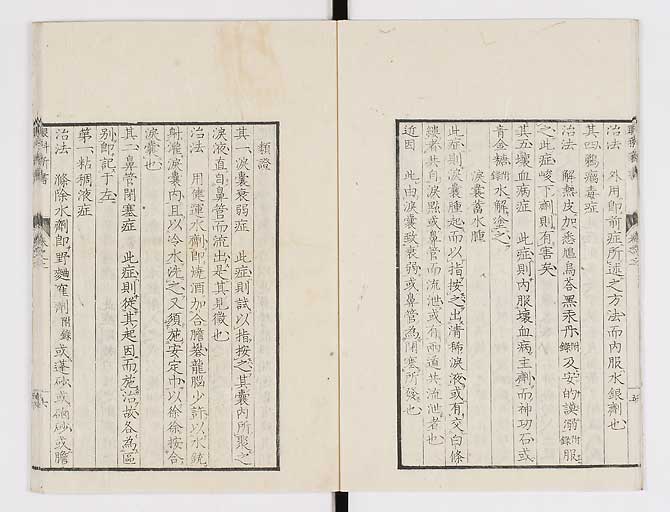 治法 外用即前症所述之方法而内服水銀劑也
其四鸦瘡毒症
治法 解熱皮加悉鳥苔黒汞丹附錄及安的謨溺附錄服
之此症峻下劑則有害矣
其五壞血病症 此症則内服壞血病主劑而神功石或
肯合糖附錄水解塗之
淚囊蓄水腫
此症則淚囊腫起而以指按之出清稀淚液或有交白條
縷者共自淚點或鼻管而流泄或有兩道共流泄者也
近因 此由淚囊致衰弱或鼻管為閉塞所發也
類證
其一淚囊衰弱症 此症則試以指按之其囊内所聚之
淚液直自鼻管而流出是其見徴也
治法 用使運水劑即燒酒加合膽礬龍腦少許以水銃
射灌淚囊内且以冷水洗之又須施安定巾以徐徐按合
淚囊也
其二鼻管閉塞症 此症則從其起因而施治故各為區
别即記于左
第一粘稠液症
治法 滌除水劑即野麵窪劑附錄或蓬砂或硇砂或膽
眼科新書
卷之三
六